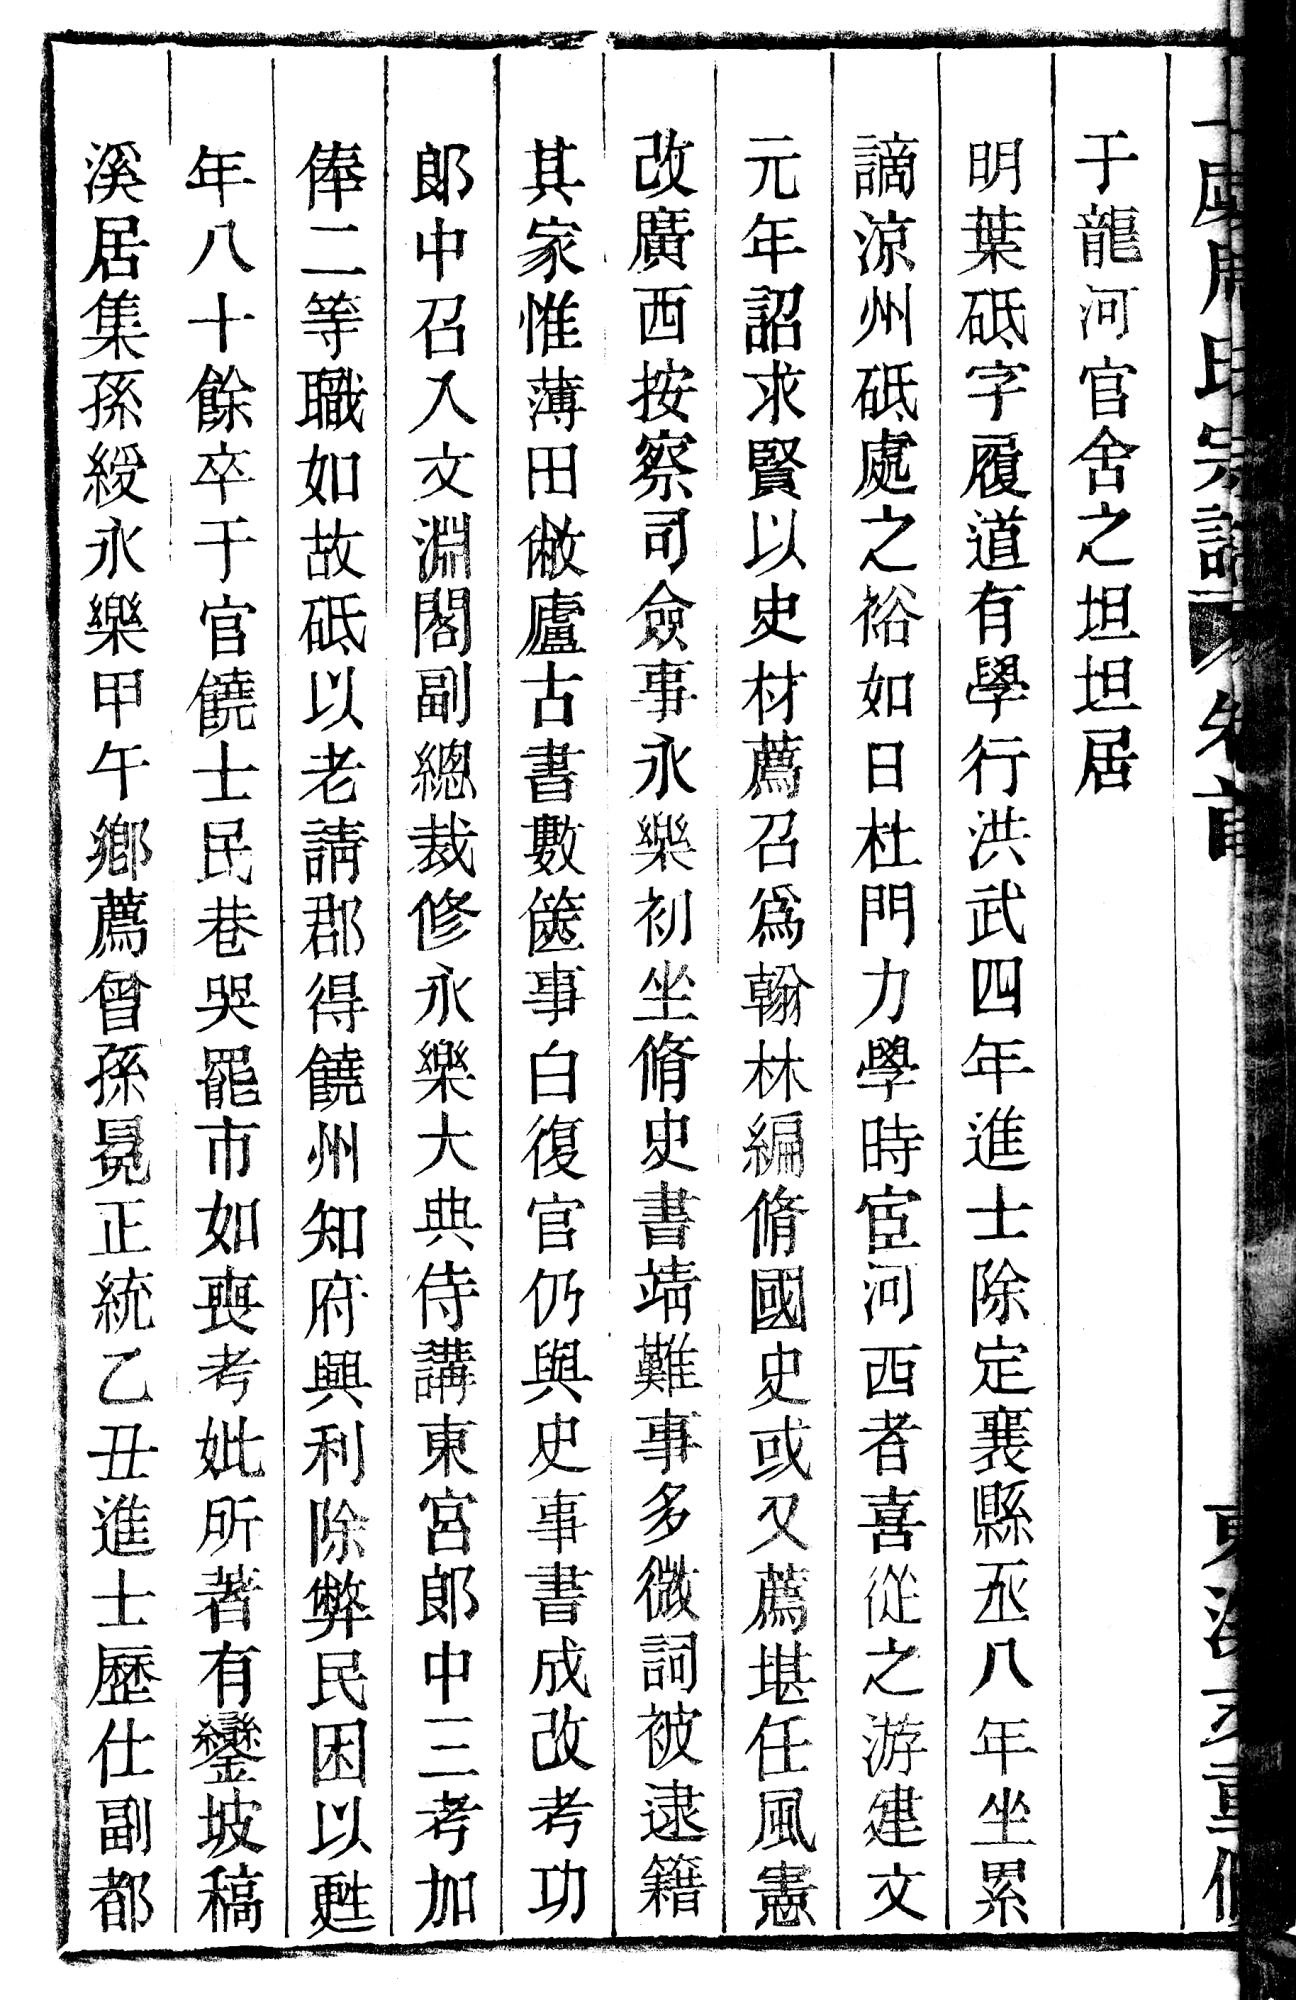 于龍河官舍之坦坦居
明葉砥字履道有學行洪武四年進士除定襄縣丞八年坐累
謫涼州砥處之裕如日杜門力學時宦河西者喜從之游建文
元年詔求賢以史材薦召爲翰林編脩國史或又薦堪任風憲
改廣西按察司僉事永樂初坐脩史書靖難事多微詞被逮籍
其家惟薄田敝廬古書數篋事白復官仍與史事書成改考功
郎中召入文淵閣副總裁修永樂大典侍講東宮郎中三考加
俸二等職如故砥以老請郡得饒州知府興利除弊民困以甦
年八十餘卒于官饒士民巷哭罷市如喪考妣所著有鑾坡稿
溪居集孫綬永樂甲午鄉薦曾孫冕正統乙丑進士歷仕副都